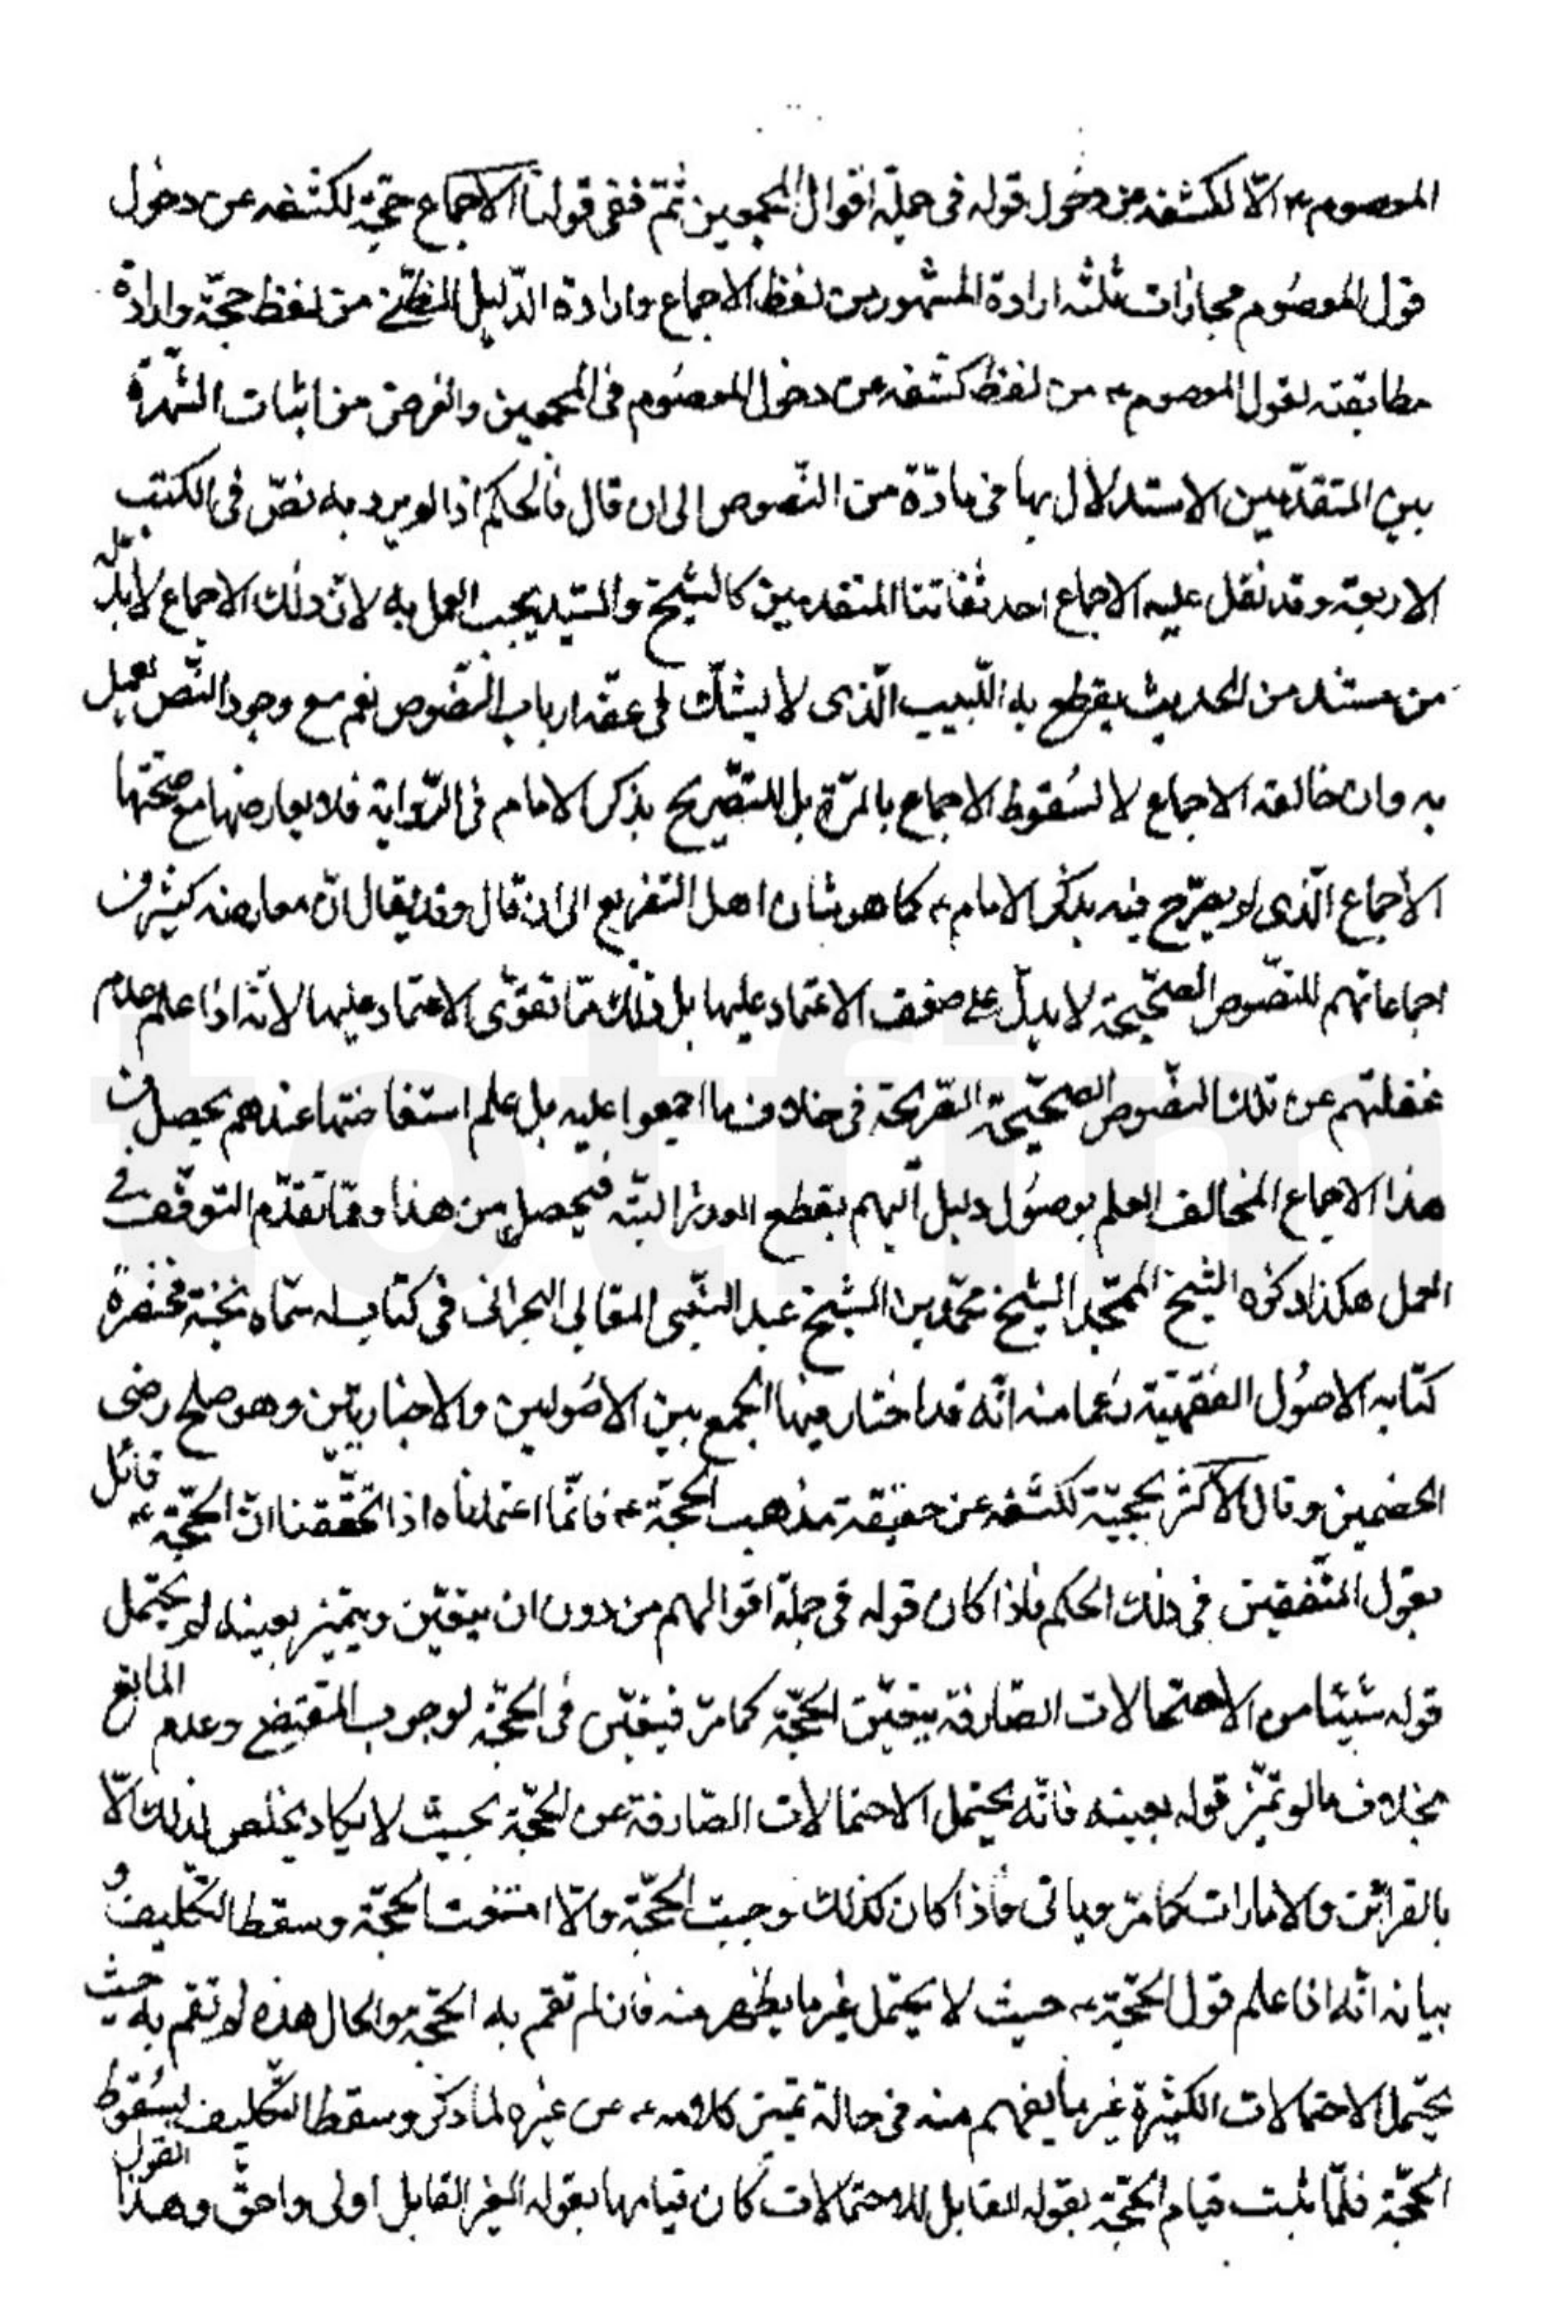 المعصوم ع الّا لكشفه عن دخول قوله فى جملة اقوال المجمعين ثمّ ففى قولنا الاجماع حجّة لكشفه عن دخول
قول المعصوم مجازات ثلثه ارادة المشهور من لفظ الاجماع وارادة الدّليل الظنّى من لفظ حجّة وارادة
مطابقته لقول المعصوم ع من لفظ كشفه عن دخول المعصوم فى المجمعين والغرض من اثبات الشّهرة
بين المتقدّمين الاستدلال بها فى مادّة من النّصوص الى ان قال فالحكم اذا لم يرد به نصّ فى الكتب
الاربعة وقد نقل عليه الاجماع احد ثقاتنا المتقدمين كالشّيخ والسّيد يجب العمل به لانّ ذلك الاجماع لابدّ له
من مستند من الحديث يقطع به اللّبيب الّذى لا يشكّ فى عفّة ارباب النّصوص نعم مع وجود النّص نعمل
به وان خالفه الاجماع لا لسُقوط الاجماع بالمرّة بل للتصّريح بذكر الامام فى الرّواية فلا يعارضها مع صحّتها
الاجماع الّذى لم يصرّح فيه بذكر الامام ع كما هو شان اهل التفريع الى ان قال وقد يقال انّ معارضة كثير من
اجماعاتهم للنصّوص الصحّيحة لا يدلّ على ضعف الاعتماد عليها بل ذلك ممّا تقوّى الاعتماد عليها لانّه اذا علم عدم
غفلتهم عن تلك النصّوص الصحّيحة الصّريحة فى خلاف ما اجمعوا عليه بل علم استفاضتها عندهم يحصل من
هذا الاجماع المخالف العلم بوصُول دليل اليهم يقطع العذر البتّه فيحصل من هذا وممّا تقدّم التوقّف فى
العمل هكذا ذكره الشّيخ الممجّد الشّيخ محمّد بن الشّيخ عبد النّبى المقابى البحرانى فى كتاب له سمّاه نخبة مختصرة
كتابه الاصُول الفقهيّة زعما منه انّه قد اختار فيها الجمع بين الاصُوليين والاخباريّين وهو صلح رضى
الخصمين وقال الاكثر بحجيّة لكشفه عن حقيقة مذهب الحجّة ع فانّما اعتمدناه اذا تحقّقنا انّ الحجّة ع قائل
بقول المتّفقين فى ذلك الحكم فاذا كان قوله فى جملة اقوالهم من دون ان يتعيّن ويتميّز بعينه لم يحتمل
قوله شيئا من الاحتمالات الصّارفة بتعيّن الحجّة كما مرّ فيتعيّن فى الحجّة لوجوب المقتضى وعدم المانع
بخلاف ما لو تميّز قوله بعينه فانّه يحتمل الاحتمالات الصّارفة عن الحجّة بحيث لا يكاد يخلص لذلك الّا
بالقرائن والامارات كما مرّ وياتى فاذا كان كذلك وجبت الحجّة والّا انتفت الحجّة وسقط التّكليف و
بيانه انّه اذا علم قول الحجّة ع حيث لا يحتمل غير ما يظهر منه فان لم تقم به الحجّة والحال هذه لم تقم به حيث
يحتمل الاحتمالات الكثيرة غير ما يفهم منه فى حالة تميّز كلامه ع عن غيره لما ذكر وسقط التّكليف لسُقوط
الحجّة فلمّا ثبت قيام الحجّة بقوله القابل للاحتمالات كان قيامها بقوله الغير القابل اولى واحقّ وهذا القول